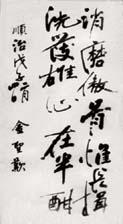 消磨傲骨惟長揖
洗雄心在半酣
順治戊子
金聖歎